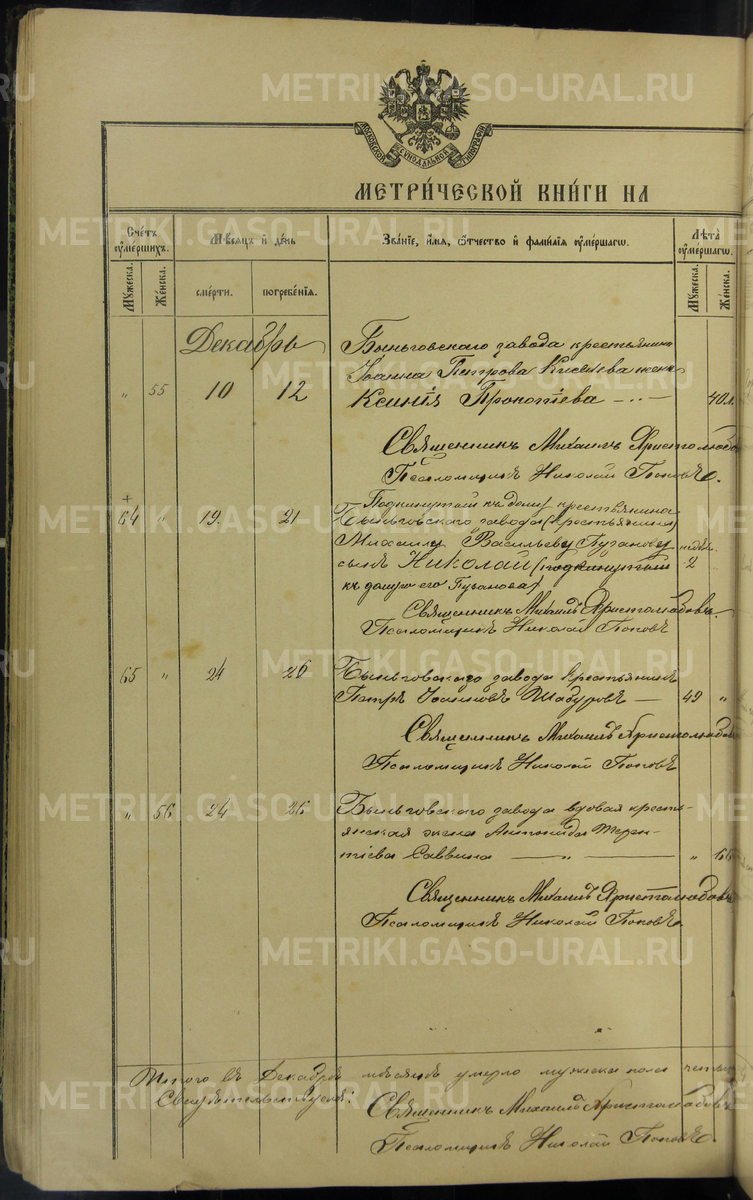 METRIKI.GASO-URAL.RU
МОСКОВСКОЙ СѴНОДАЛЬНОЙ ТИПОГРАФІИ
МЕТРИ́ЧЕСКОЙ КНИ́ГИ НА
Сче́тъ ᲂу҆ме́ршихъ.
Мѣ́сяцъ и҆ де́нь
Зва́нїе, и҆́мя, ѻ҆́тчество и҆ фами́лїя ᲂу҆ме́ршагѡ.
Лѣ́та ᲂу҆ме́ршагѡ.
Мꙋ́жеска. Же́нска. сме́рти. погребе́нїя. Мꙋ́жеска. Же́нска.
Декабрь
Быньговскаго завода крестьянина
Іоанна Петрова Киселева жена
„ 55 10 12 Ксенія Прокопіева 40 л.
Священникъ Михаилъ Аристо
Псаломщикъ Николай Поповъ.
Подкинутый къ дому крестьянина
64 „ 19. 21 Быньговскаго завода (крестьянину
Михаилу Васильеву Пузанову
сынъ Николай (подкинутый 2
къ дому его Пузанова)
Священникъ Михаилъ
Псаломщикъ Николай Поповъ
65 „ 24 26 Быньговскаго завода крестьянинъ
Петръ Іоанновъ Шадуровъ 49 „
Священникъ Михаилъ
Псаломщикъ Николай Поповъ
„ 56 24 26 Быньговскаго завода вдовая кресть-
янская жена Антонида Терен-
тіева Саввина „ „ 66
Священникъ Михаилъ
Псаломщикъ Николай Поповъ.
Итого въ Декабрѣ мѣсяцѣ умерло мужеска пола четы
Свидѣтельствуемъ:
Священникъ Михаилъ
Псаломщикъ Николай Поповъ.